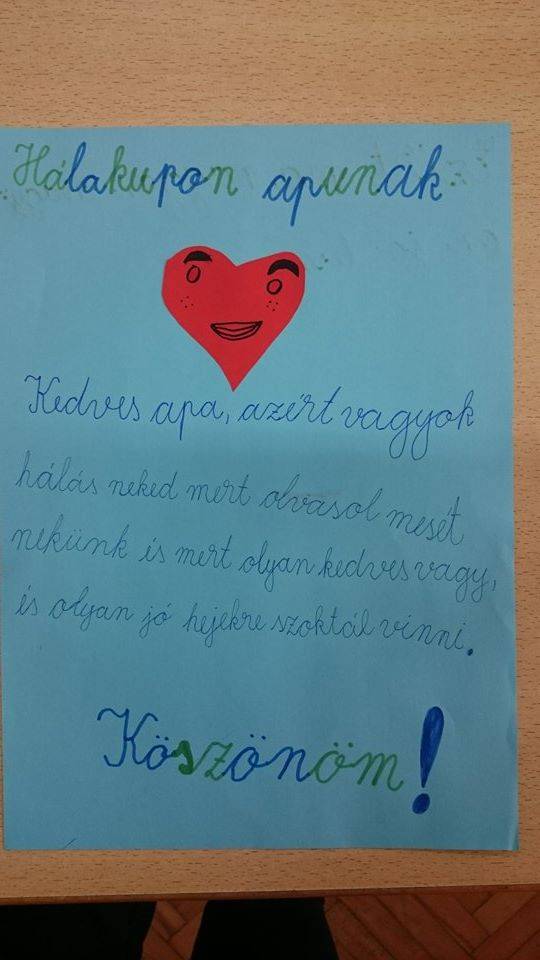 Hálakupon apunak
Kedves apa, azért vagyok
hálás neked mert olvasol mesét
nekünk és mert olyan kedves vagy,
és olyan jó hejekre szoktál vinni.
Köszönöm!